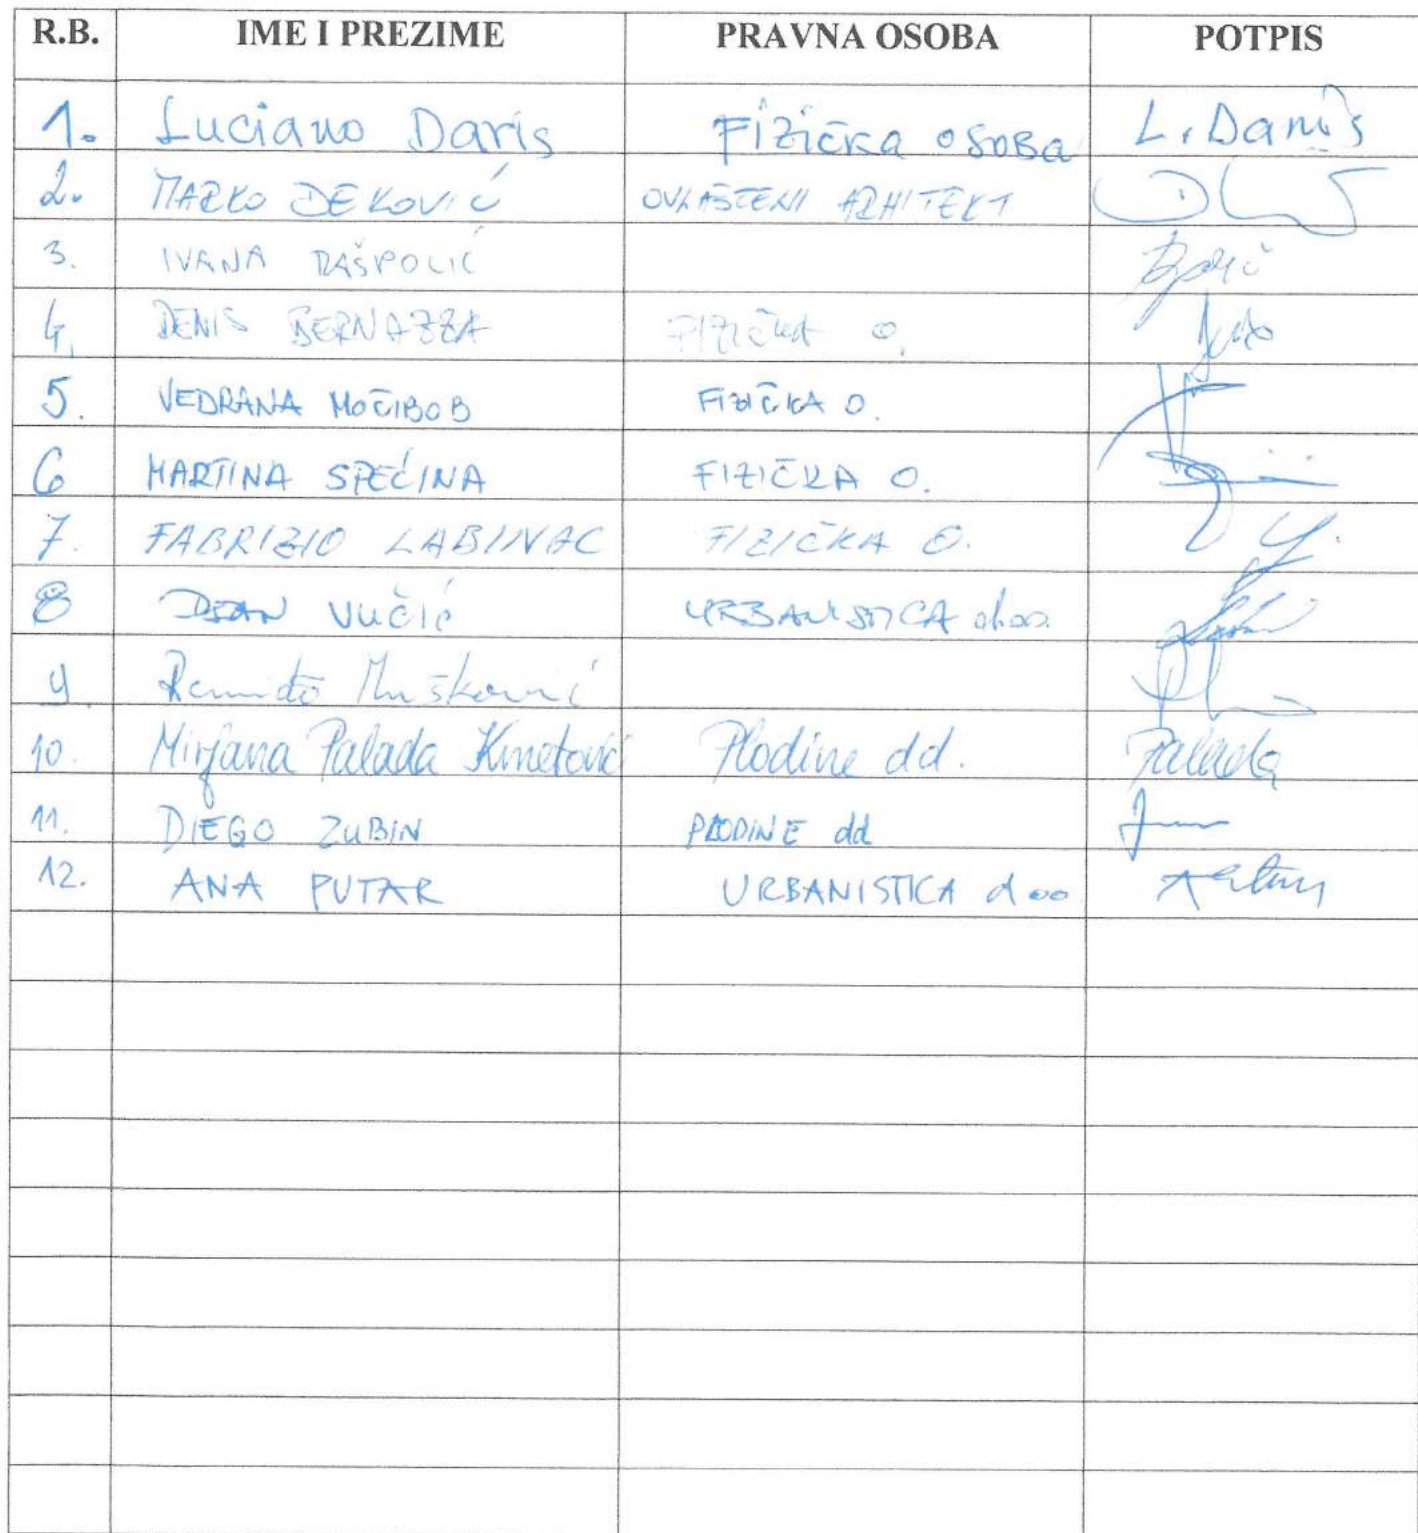 R.B. IME I PREZIME PRAVNA OSOBA POTPIS
1. Luciano Daris Fizička osoba L. Daris
2. MARKO DEKOVIĆ OVLAŠTENI ARHITEKT
3. IVANA RAŠPOLIĆ
4. DENIS BERNAZZA FIZIČKA O.
5. VEDRANA MOČIBOB FIZIČKA O.
6 MARTINA SPEĆINA FIZIČKA O.
7. FABRIZIO LABINAC FIZIČKA O.
8 DEAN VUČIĆ URBANISTICA d.o.o.
9.
10. Mirjana Palada Kmetović Plodine dd. Palada
11. DIEGO ZUBIN PLODINE dd
12. ANA PUTAR URBANISTICA d oo